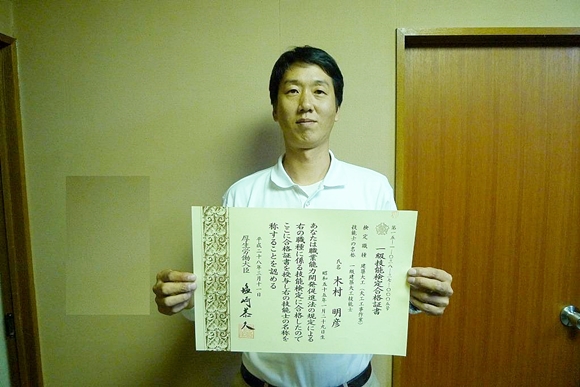 一級技能検定合格証書
検定職種 建築大工(大工工事作業)
技能士の名称 一級建築大工技能士
氏名 木村 明彦
昭和五十五年一月二十九日生
あなたは職業能力開発促進法の規定による
右の職種に係る技能検定に合格したので
ここに合格証書を授与し右の技能士の名称を
称することを認める
平成二十八年三月十一日
厚生労働大臣
塩崎恭久